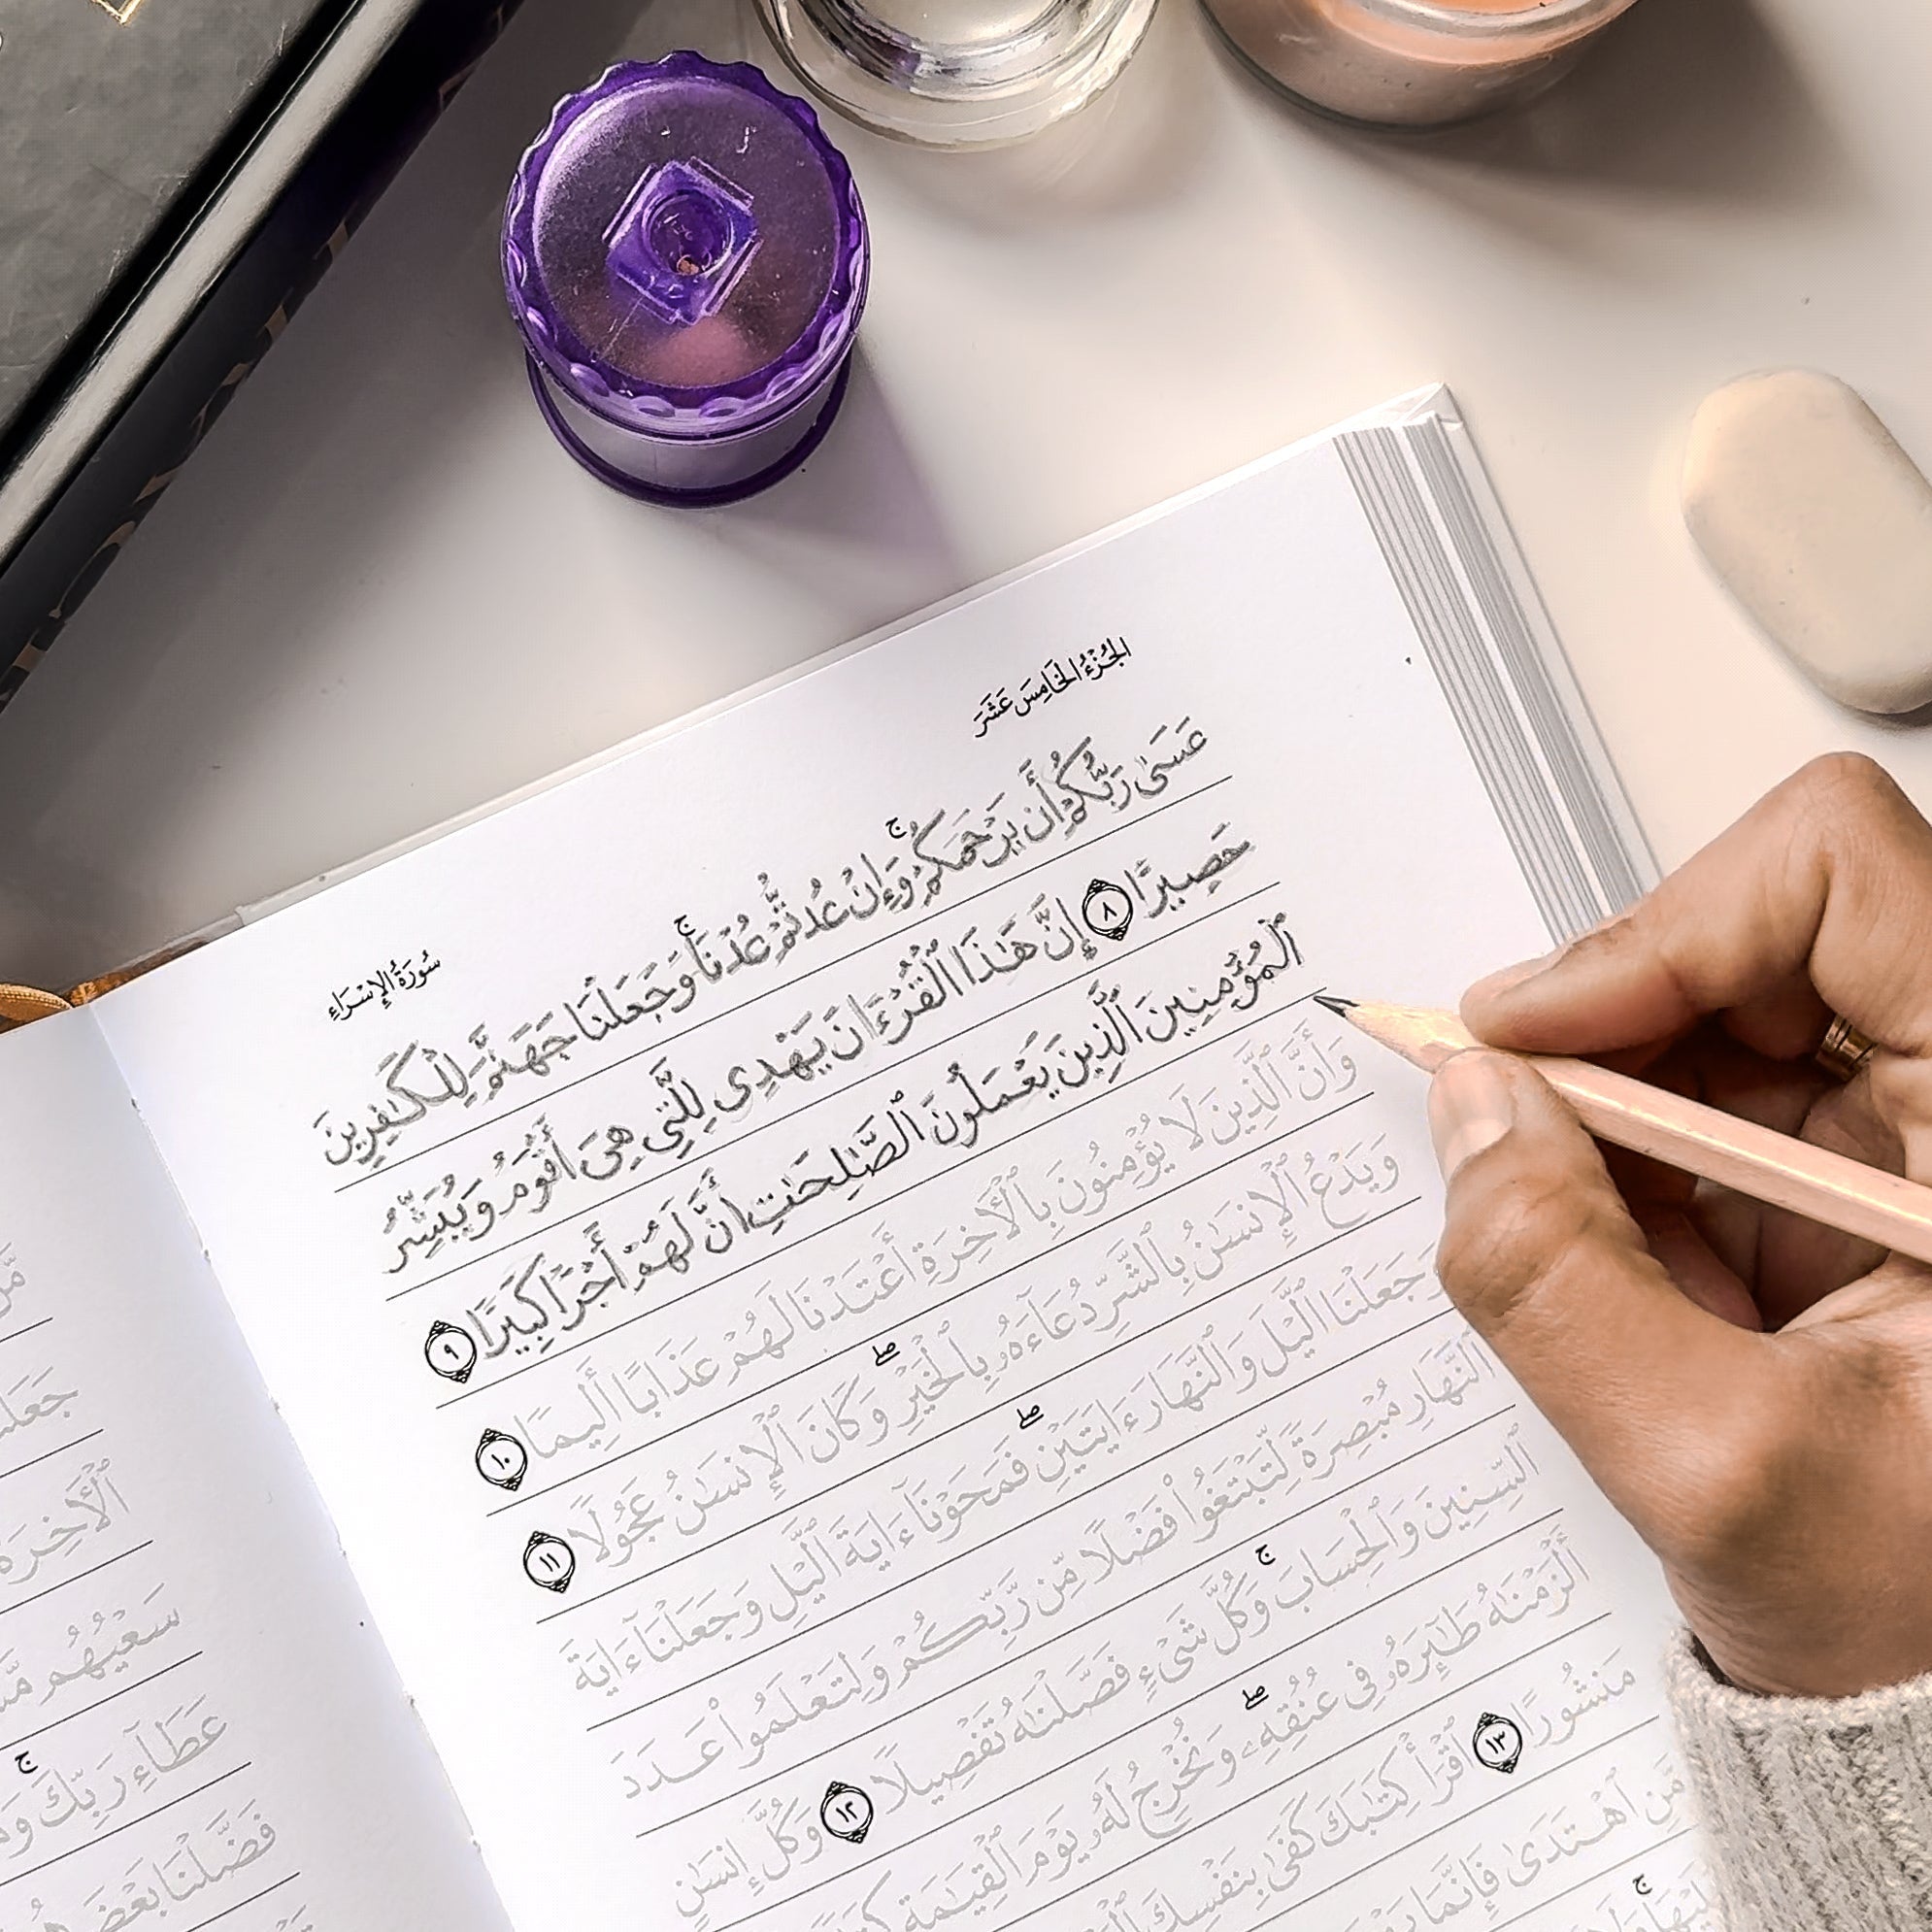 الجُزْءُ الخَامِسَ عَشَرَ
سُورَةُ الإِسْرَاءِ
عَسَىٰ رَبُّكُمْ أَن يَرْحَمَكُمْ ۚ وَإِنْ عُدتُّمْ عُدْنَا ۚ وَجَعَلْنَا جَهَنَّمَ لِلْكَـٰفِرِينَ
حَصِيرًا ٨ إِنَّ هَـٰذَا ٱلْقُرْءَانَ يَهْدِى لِلَّتِى هِىَ أَقْوَمُ وَيُبَشِّرُ
ٱلْمُؤْمِنِينَ ٱلَّذِينَ يَعْمَلُونَ ٱلصَّـٰلِحَـٰتِ أَنَّ لَهُمْ أَجْرًا كَبِيرًا ٩
وَأَنَّ ٱلَّذِينَ لَا يُؤْمِنُونَ بِٱلْأَخِرَةِ أَعْتَدْنَا لَهُمْ عَذَابًا أَلِيمًا ١٠
وَيَدْعُ ٱلْإِنسَـٰنُ بِٱلشَّرِّ دُعَآءَهُۥ بِٱلْخَيْرِ ۖ وَكَانَ ٱلْإِنسَـٰنُ عَجُولًا ١١
وَجَعَلْنَا ٱلَّيْلَ وَٱلنَّهَارَ ءَايَتَيْنِ ۖ فَمَحَوْنَآ ءَايَةَ ٱلَّيْلِ وَجَعَلْنَآ ءَايَةَ
ٱلنَّهَارِ مُبْصِرَةً لِّتَبْتَغُوا۟ فَضْلًا مِّن رَّبِّكُمْ وَلِتَعْلَمُوا۟ عَدَدَ
ٱلسِّنِينَ وَٱلْحِسَابَ ۚ وَكُلَّ شَىْءٍ فَصَّلْنَـٰهُ تَفْصِيلًا ١٢ وَكُلَّ إِنسَـٰنٍ
أَلْزَمْنَـٰهُ طَـٰٓئِرَهُۥ فِى عُنُقِهِۦ ۖ وَنُخْرِجُ لَهُۥ يَوْمَ ٱلْقِيَـٰمَةِ
مَنشُورًا ١٣ ٱقْرَأْ كِتَـٰبَكَ كَفَىٰ بِنَفْسِكَ
مَّنِ ٱهْتَدَىٰ فَإِنَّمَا
جَعَلْنَا
ٱلْأَخِرَةَ
سَعْيُهُم
عَطَآءِ رَبِّكَ ۚ
فَضَّلْنَا بَعْضَ